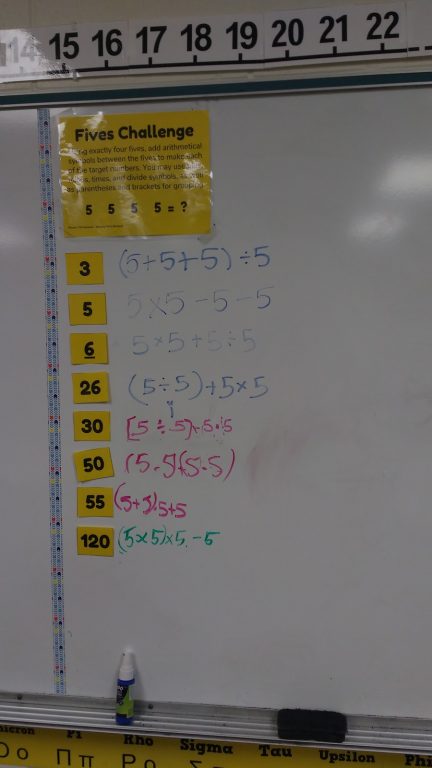 14 15 16 17 18 19 20 21 22
Fives Challenge
Using exactly four fives, add arithmetical
symbols between the fives to make each
of the target numbers. You may use
times, and divide symbols,
as parentheses and brackets for grouping
5 5 5 5 = ?
3 (5+5+5)÷5
5 5×5-5-5
6 5×5+5÷5
26 (5÷5)+5×5
30 [5÷5)+5·5
50 (5·5)+(5·5)
55 (5+5)·5+5
120 (5×5)×5-5
Pi Rho Sigma Tau Upsilon Phi
Οο Ππ Ρρ Σ